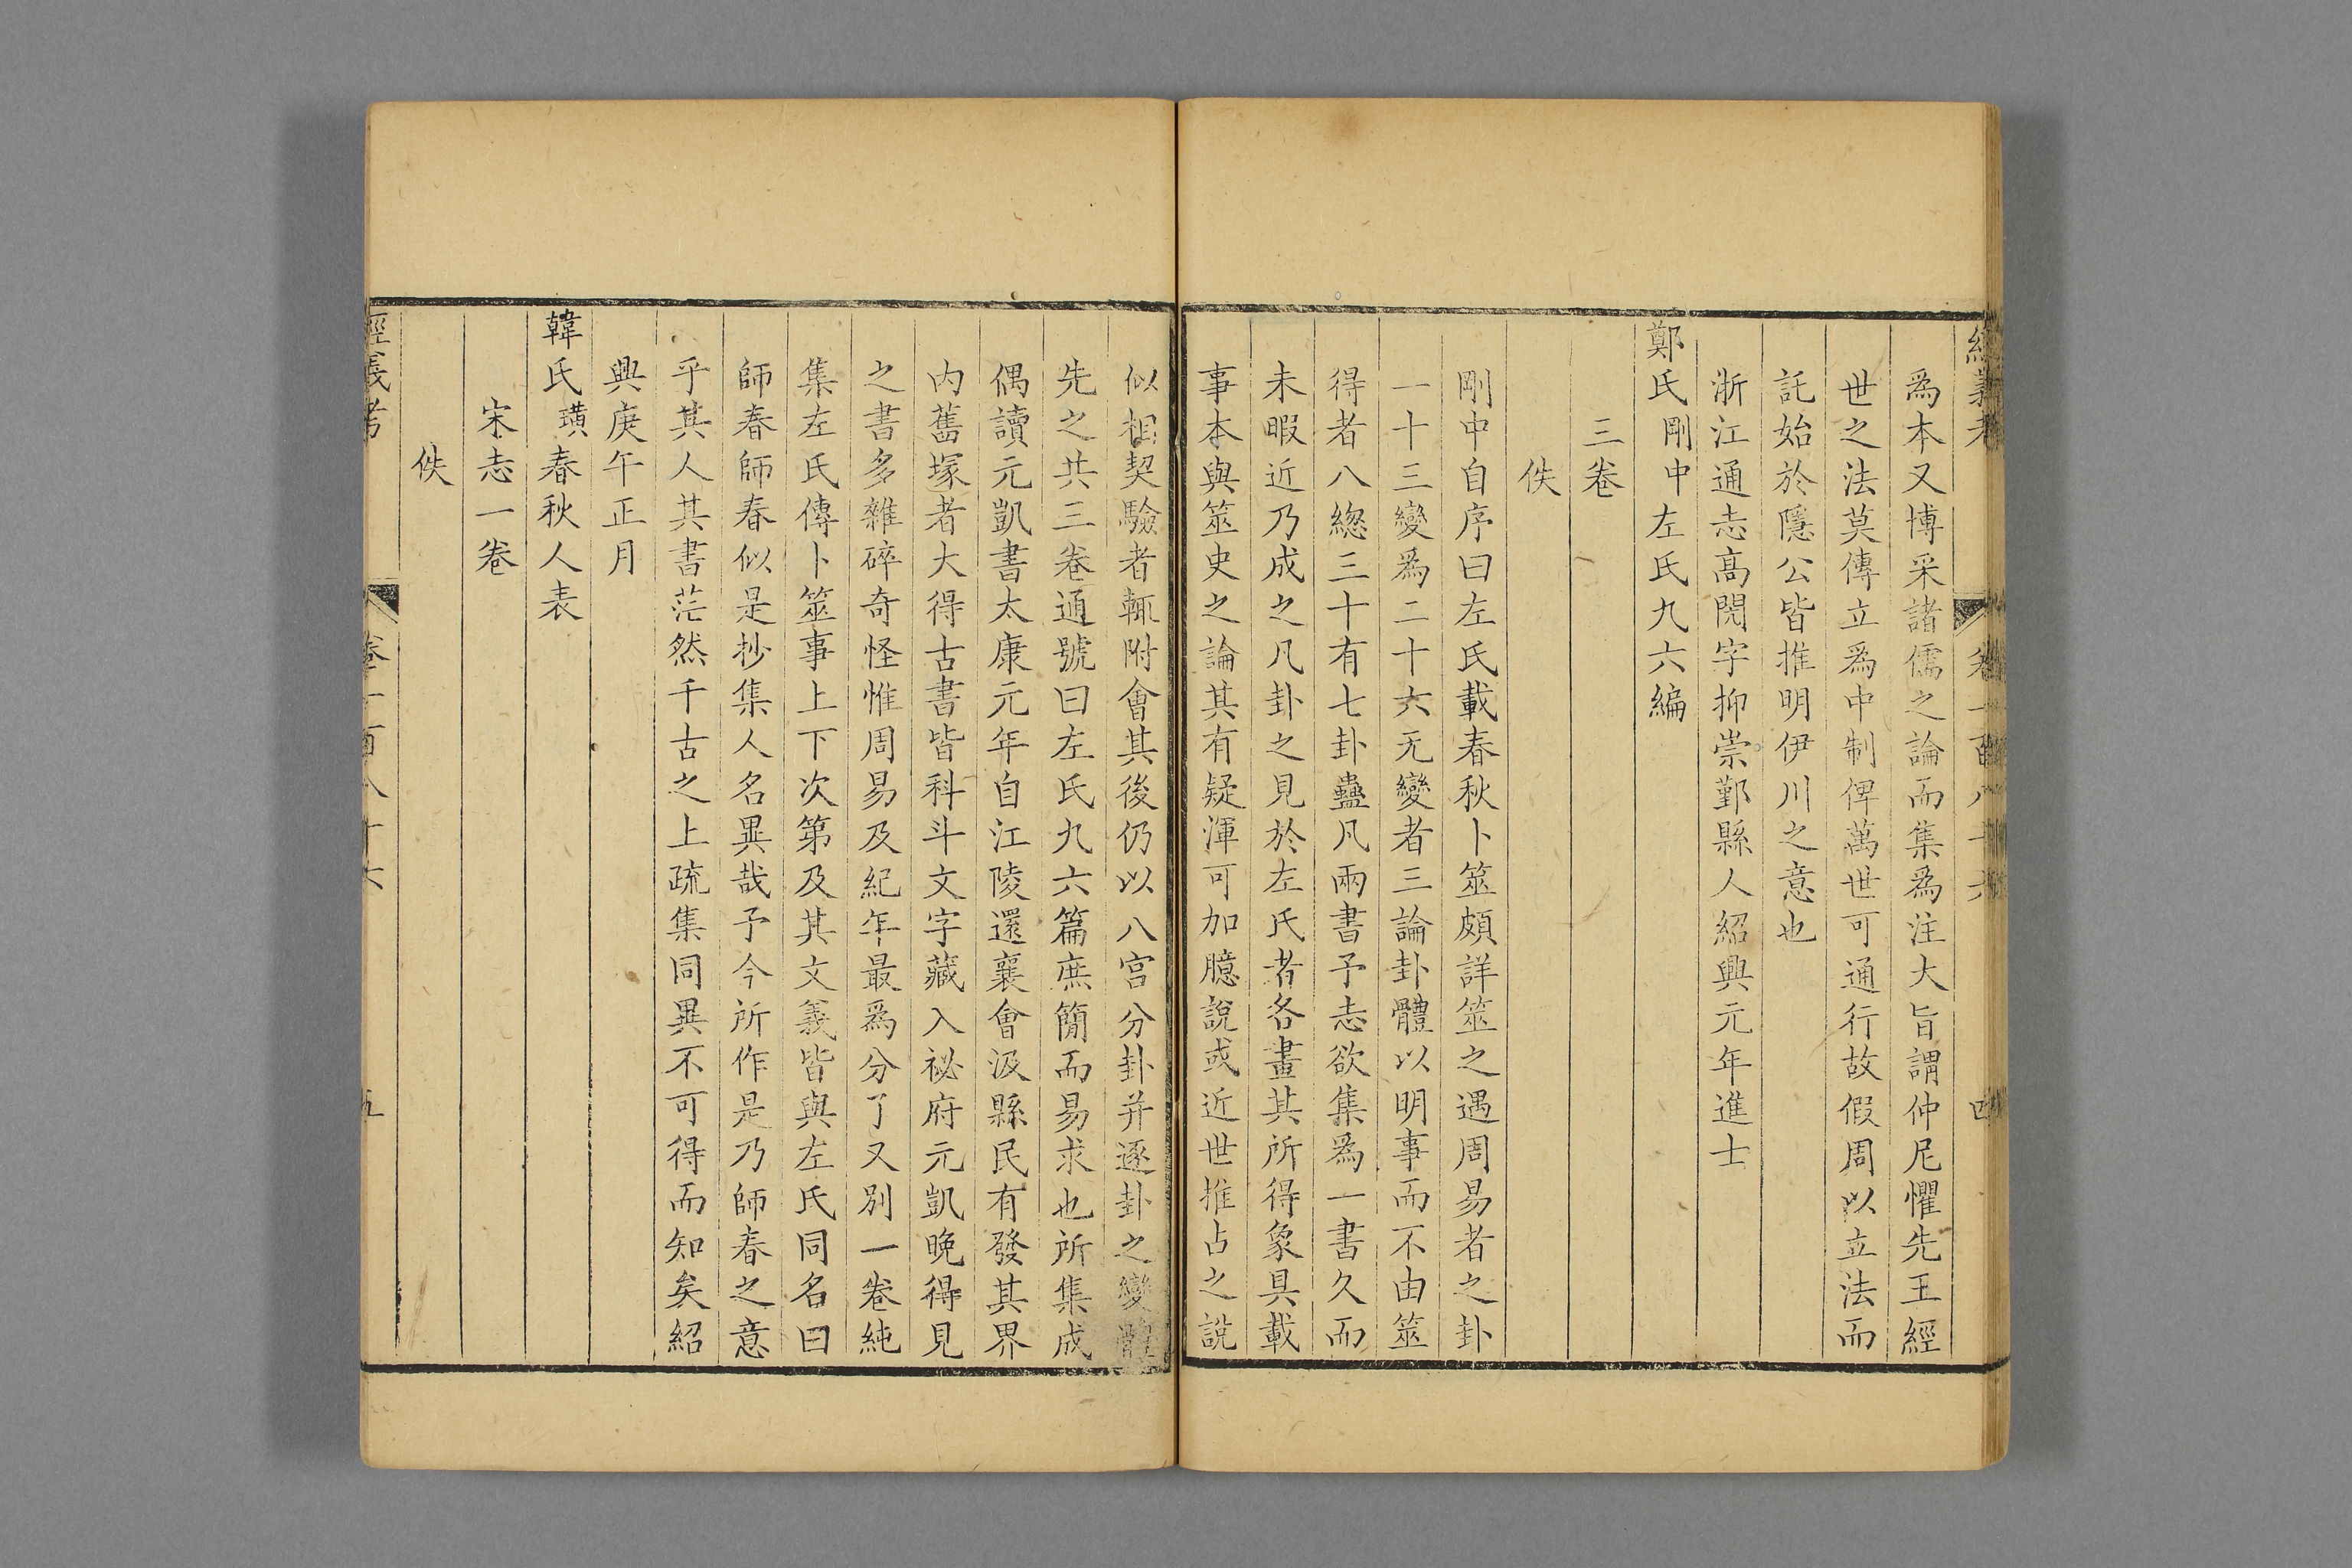 經義考 卷一百八十六 四
爲本又博采諸儒之論而集爲注大旨謂仲尼懼先王經
世之法莫傳立爲中制俾萬世可通行故假周以立法而
託始於隱公皆推明伊川之意也
浙江通志高閌字抑崇鄞縣人紹興元年進士
鄭氏剛中左氏九六編
三卷
佚
剛中自序曰左氏載春秋卜筮頗詳筮之遇周易者之卦
一十三變爲二十六无變者三論卦體以明事而不由筮
得者八緫三十有七卦蠱凡兩書予志欲集爲一書久而
未暇近乃成之凡卦之見於左氏者各畫其所得象具載
事本與筮史之論其有疑渾可加臆說或近世推占之說
似相契驗者輒附會其後仍以八宫分卦并逐卦之變體
先之共三卷通號曰左氏九六篇庶簡而易求也所集成
偶讀元凱書太康元年自江陵還襄會汲縣民有發其界
内舊塚者大得古書皆科斗文字藏入祕府元凱晚得見
之書多雜碎奇怪惟周易及紀年最爲分了又别一卷純
集左氏傳卜筮事上下次第及其文義皆與左氏同名曰
師春師春似是抄集人名異哉予今所作是乃師春之意
乎其人其書茫然千古之上疏集同異不可得而知矣紹
興庚午正月
韓氏璜春秋人表
宋志一卷
佚
經義考 卷一百八十六 五